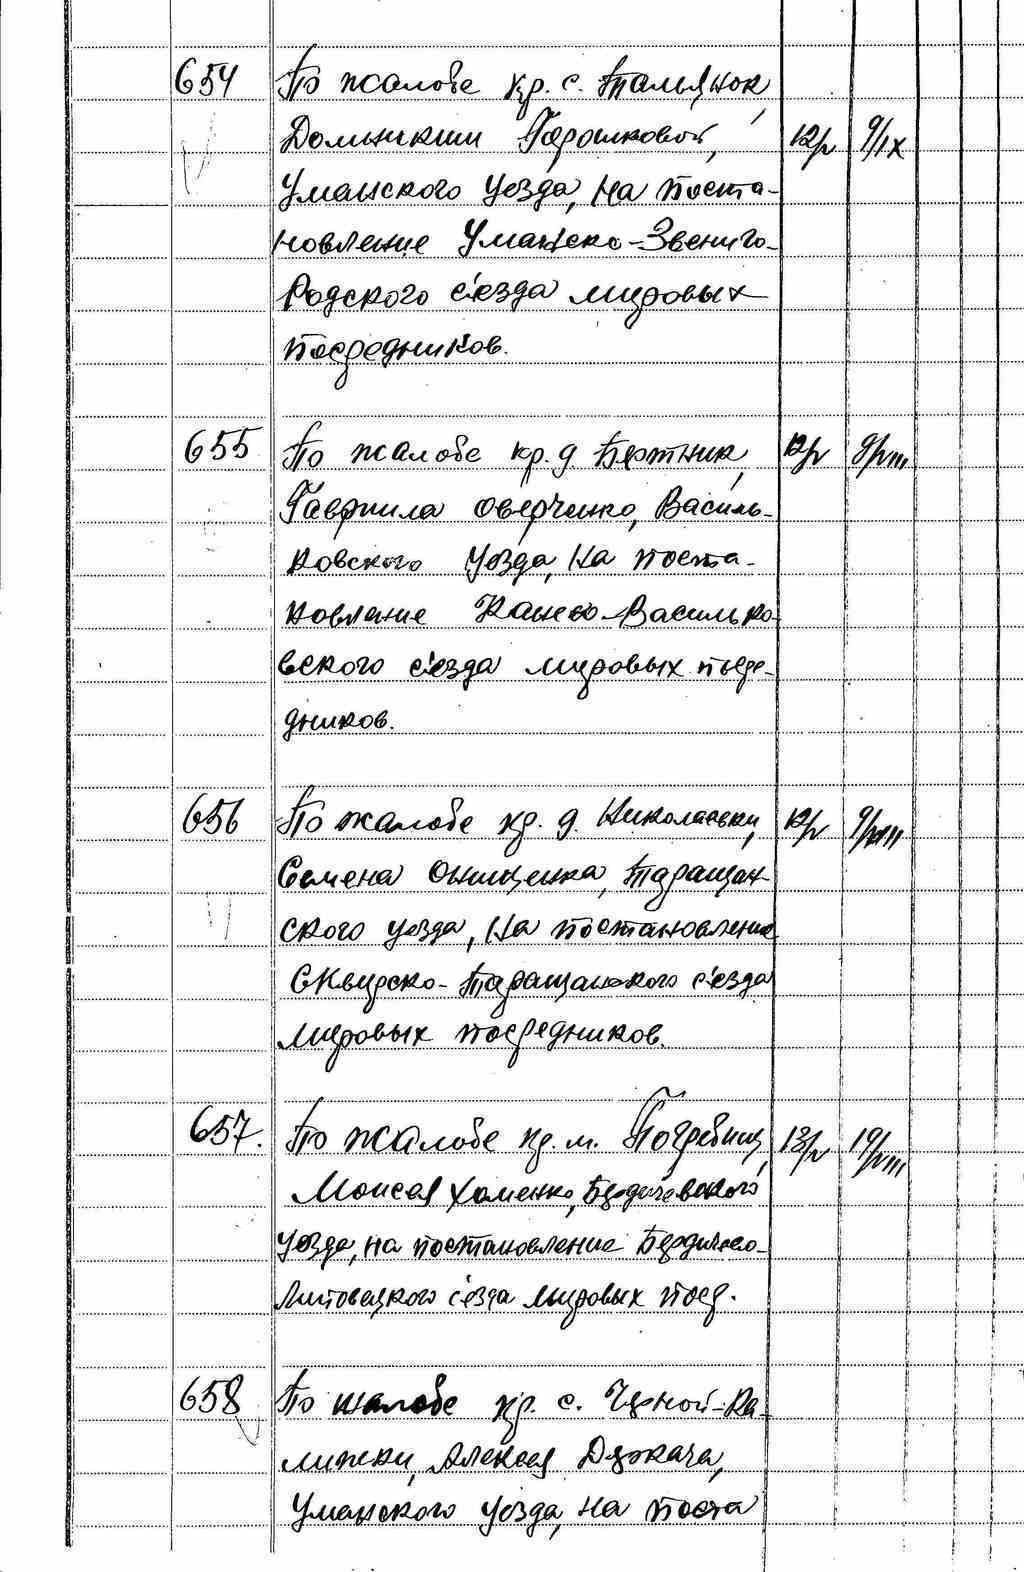 654 По жалобе кр. с. Тальянок,
Доминикии Горошковой, 12/V 9/IX
Уманского уезда, на поста-
новление Уманско-Звениго-
родского с'езда мировых
посредников.
655 По жалобе кр. д. Бертник, 12/V 9/VIII
Гавриила Оверченко, Василь-
ковского уезда, на поста-
новление Канево-Василько-
вского с'езда мировых поре-
дников.
656 По жалобе кр. д. Николаевки, 12/V 9/VIII
Семена Онищенка, Таращан-
ского уезда, на постановление
Сквирско-Таращанского с'езда
мировых посредников.
657. По жалобе кр. м. Погребищ, 13/V 19/VIII
Моисея Хоменко, Бердичевского
уезда, на постановление Бердичево-
Липовецкого с'езда мировых поср.
658 По жалобе кр. с. Черной-Ка-
мянки, Алексея Деркача,
Уманского уезда, на поста